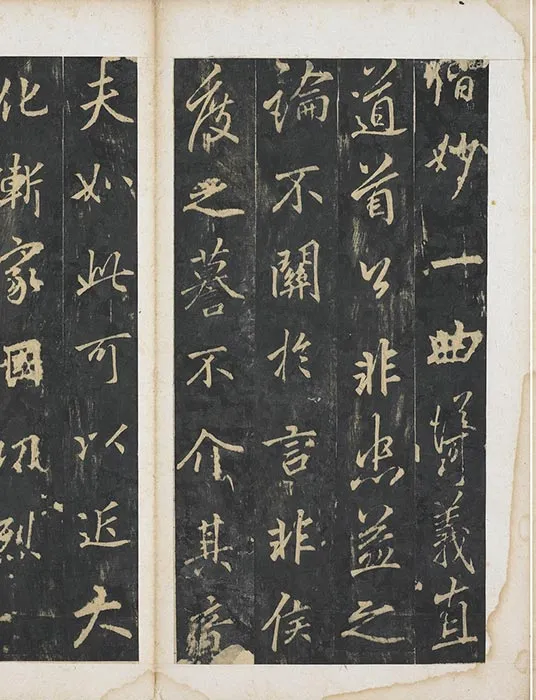 偕妙一曲義直
道首公非忠益之
論不關於言非侯
度之謩不介其
夫如此可以近大
化漸家國烈